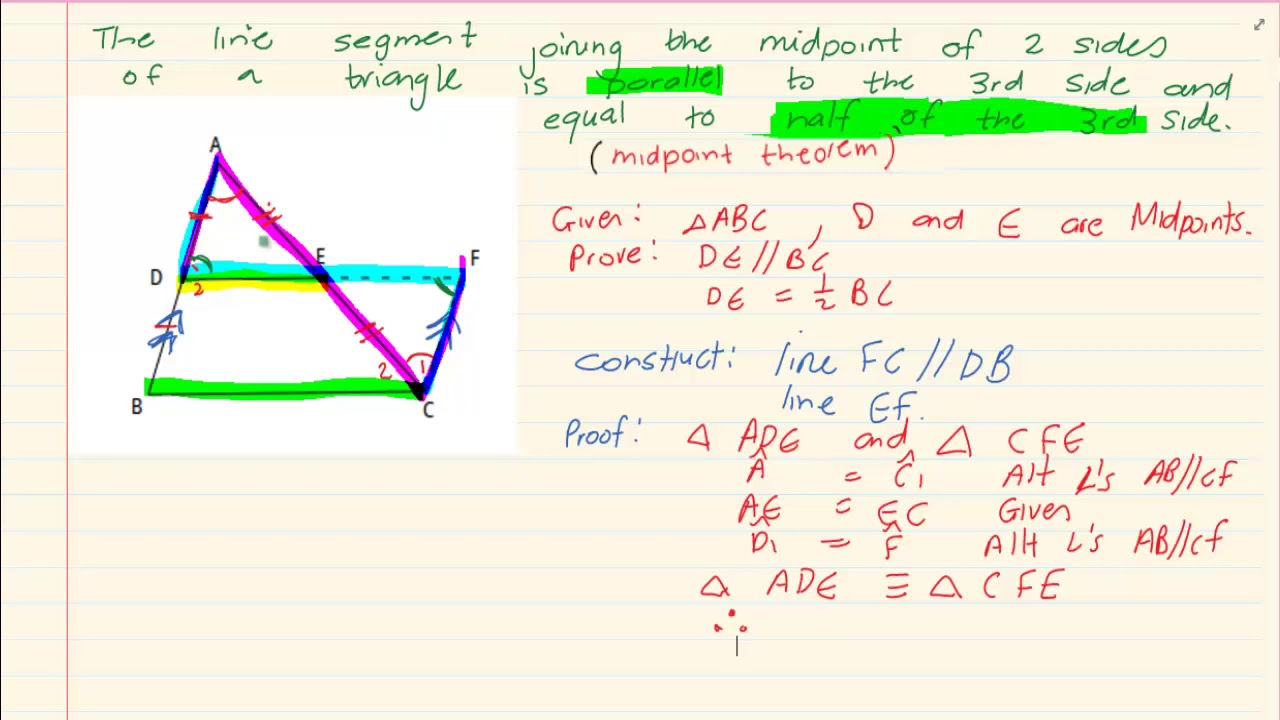 The line segment joining the midpoint of 2 sides
of a triangle is parallel to the 3rd side and
equal to half of the 3rd side.
(midpoint theorem)
Given: △ABC, D and E are Midpoints.
Prove: DE//BC
DE = 1/2 BC
construct: line FC//DB
line EF.
Proof: △ ADE and △ CFE
Â = Ĉ1 Alt L's AB//CF
AE = EC Given
D̂1 = F̂ Alt L's AB//CF
△ ADE ≡ △ CFE
∴
A
E
F
D
1
2
2
1
B
C